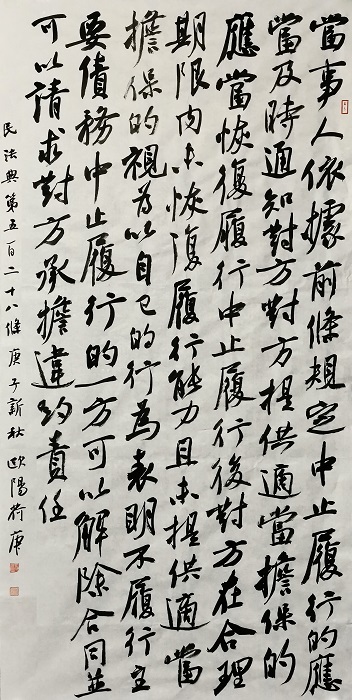 當事人依據前條規定中止履行的應
當及時通知對方對方提供適當擔保的
應當恢復履行中止履行後對方在合理
期限內未恢復履行能力且未提供適當
擔保的視為以自己的行為表明不履行主
要債務中止履行的一方可以解除合同並
可以請求對方承擔違約責任
民法典第五百二十八條庚子新秋歐陽荷庚